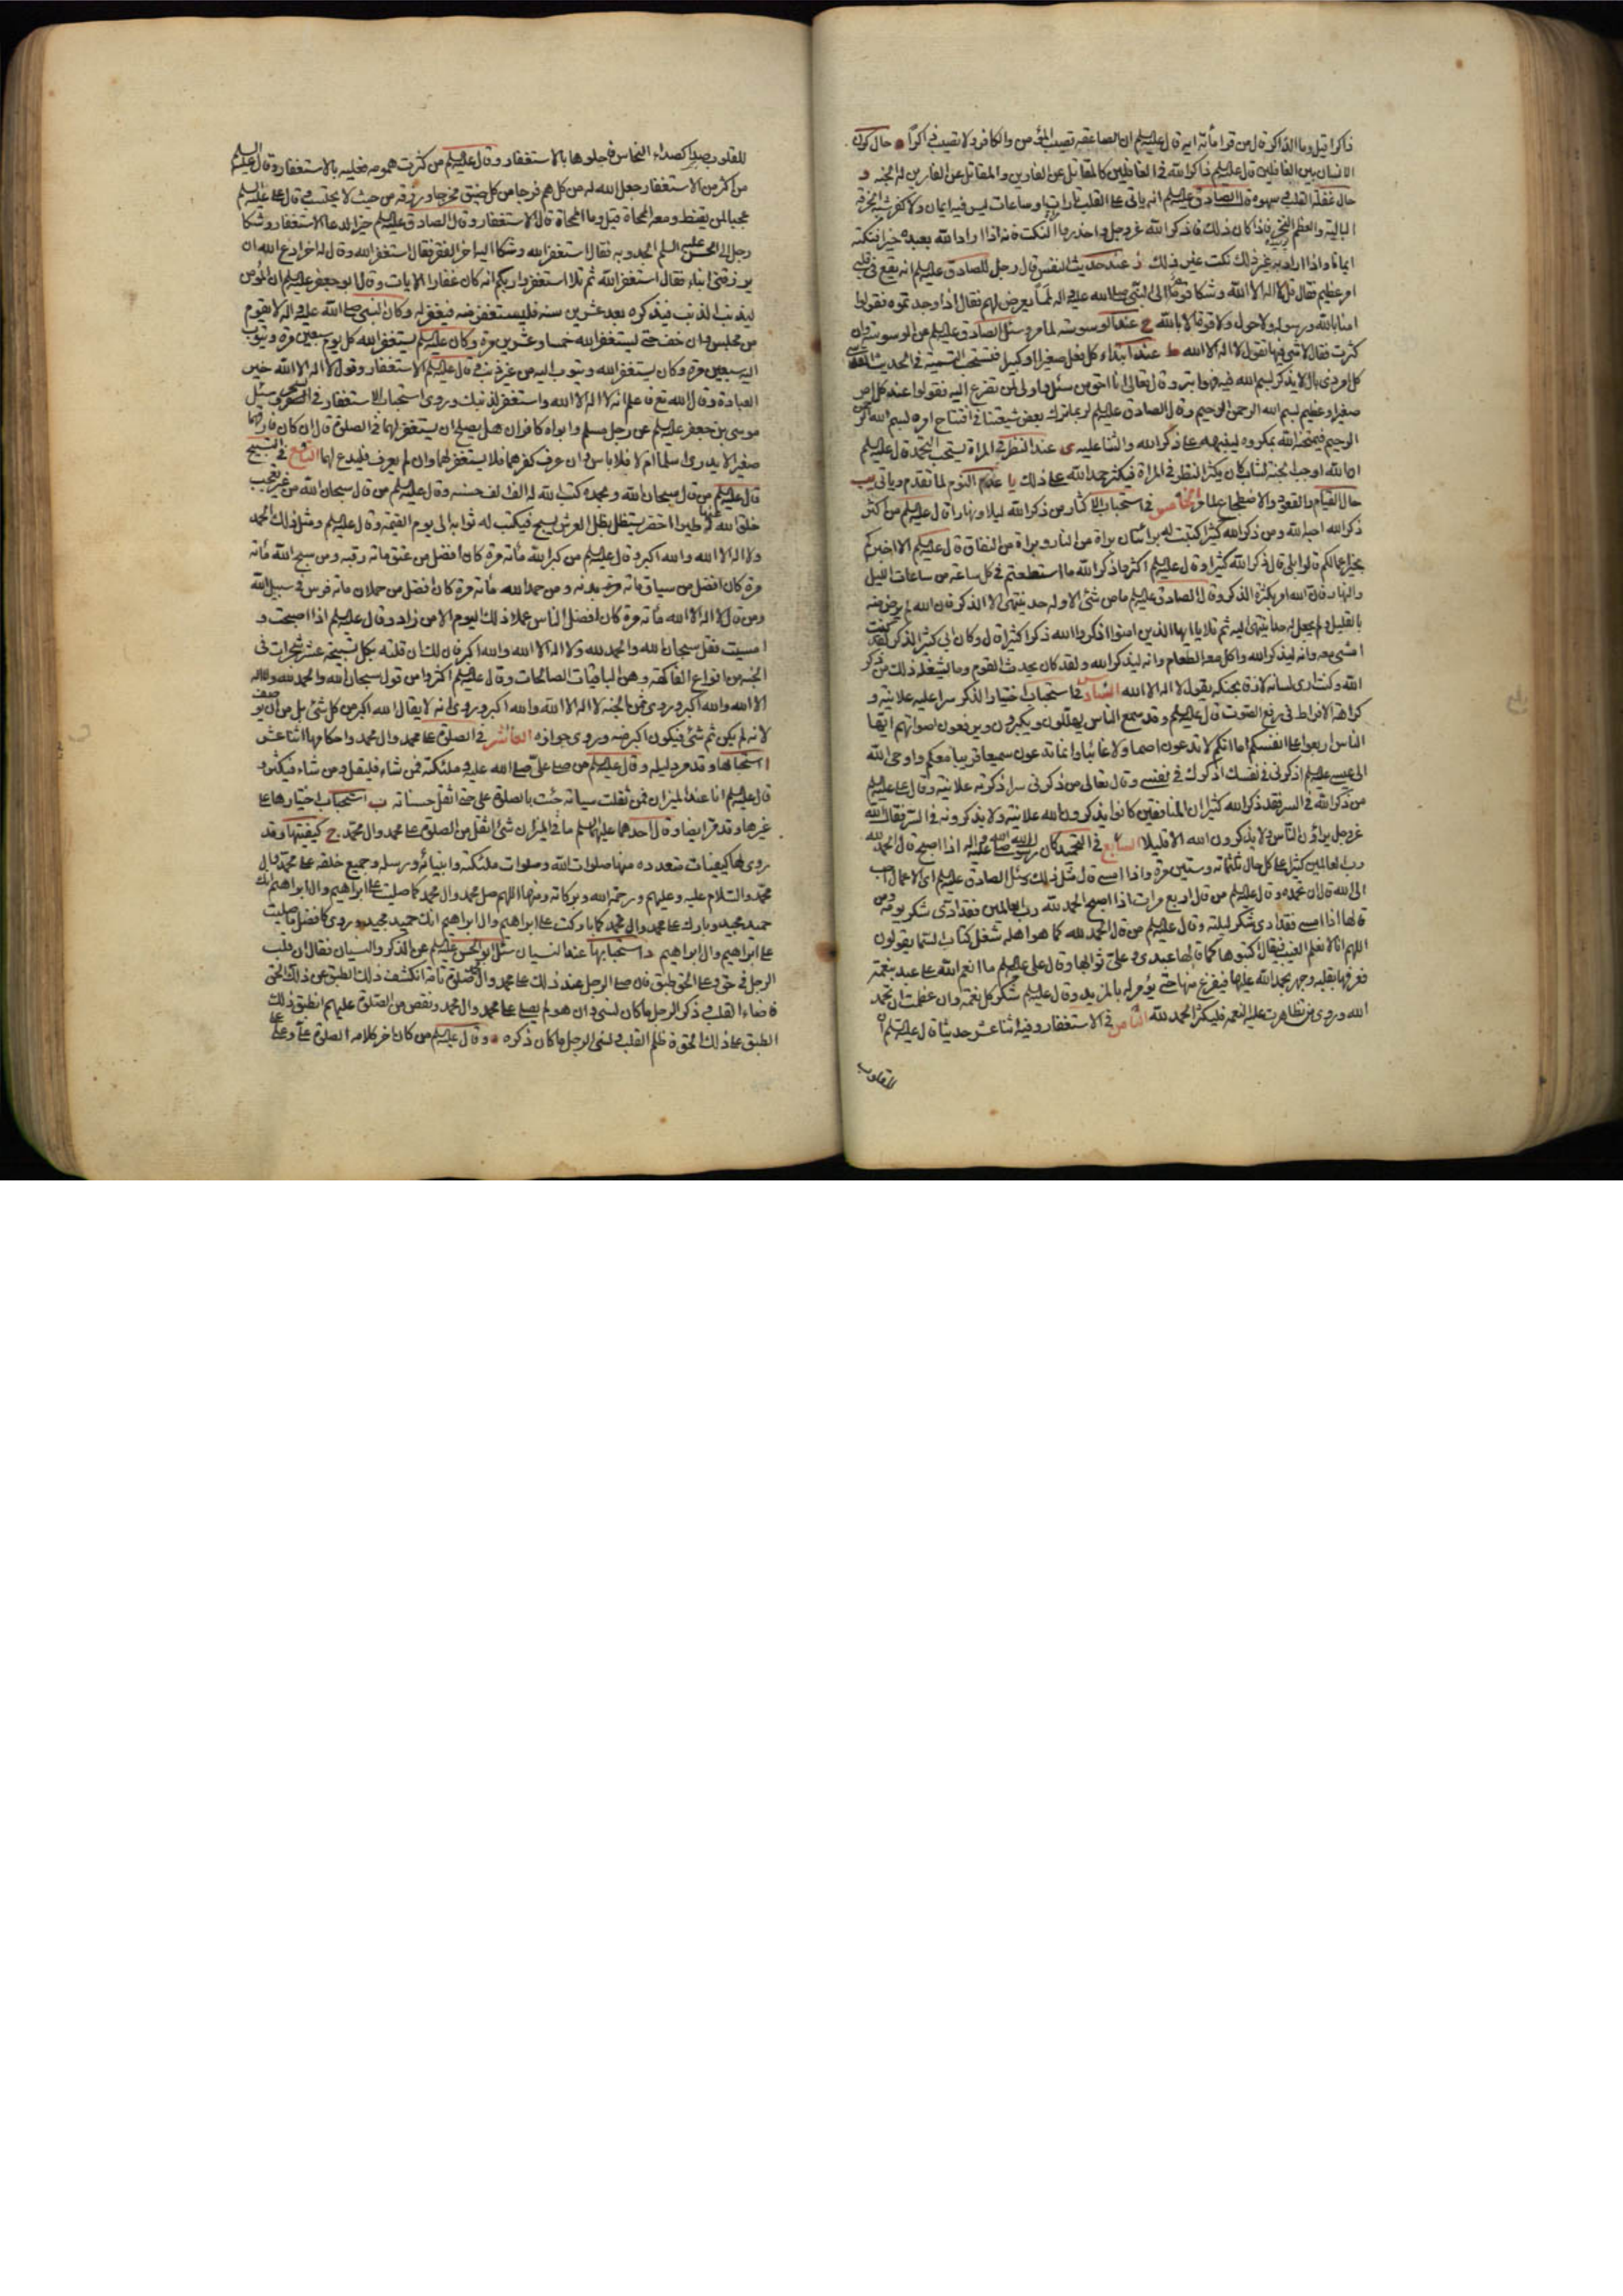 ذاكرا قيل وما الذاكر قال من قرا مأته ايه قال عليه السلم ان الصاعقه تصيب المؤمن والكافر ولا تصيب ذاكرا و حال كون
الانسان بين الغافلين قال عليه السلم ذاكر الله في الغافلين كالمقاتل عن الفارين والمقاتل عن الفارين له الجنه و
حال غفلة القلب وسهوه قال الصادق عليه السلم انه ياتى على القلب تارات او ساعات ليس فيه ايمان ولا كفر شبه الخرقه
الباليه والعظم النخر فاذا كان ذلك فاذكر الله عز وجل واحذروا النكت فانه اذا اراد الله بعبده خيرا نكته
ايمانا واذا اراد به غير ذلك نكت غير ذلك ز عند حديث النفس قال رجل للصادق عليه السلم انه يقع في قلبى
امر عظيم فقال قل لا اله الا الله وشكا قوم الى النبى صلى الله عليه واله لمما يعرض لهم فقال اذا وجدتموه فقولوا
امنا بالله ورسوله ولا حول ولا قوة الا بالله ح عند الوسوسه لما مر وسئل الصادق عليه السلم عن الوسوسه وان
كثرت فقال لا شى فيها تقول لا اله الا الله ط عند ابتداء كل فعل صغير او كبير فتستحب التسمية في الحديث القدسى
كل امر ذى بال لا يذكر بسم الله فيه فهو ابتر وقال تعالى انا احق من سئل واولى من تضرع اليه فقولوا عند كل امر
صغير او عظيم بسم الله الرحمن الرحيم وقال الصادق عليه السلم لربما ترك بعض شيعتنا في افتتاح امره بسم الله الرحمن
الرحيم فيمتحنه الله بمكروه لينبهه على ذكر الله والثنا عليه ى عند النظر في المراة يستحب التحمد قال عليه السلم
ان الله اوجب الجنه لشاب كان يكثر النظر في المراة فيكثر حمد الله على ذلك يا عند النوم لما تقدم وياتى يب
حال القيام والقعود والاضطجاع لما مر الخامس في استحباب الاكثار من ذكر الله ليلا ونهارا قال عليه السلم من اكثر
ذكر الله احبه الله ومن ذكر الله كثيرا كتبت له براتان براة من النار وبراة من النفاق قال عليه السلم الا اخبركم
بخير اعمالكم قالوا بلى قال ذكر الله كثيرا وقال عليه السلم اكثروا ذكر الله ما استطعتم في كل ساعه من ساعات الليل
والنهار فان الله امر بكثرة الذكر وقال الصادق عليه السلم ما من شئ الا وله حد ينتهى الا الذكر فان الله لم يرض منه
بالقليل ولم يجعل له حدا ينتهى اليه ثم تلا يا ايها الذين امنوا اذكروا الله ذكرا كثيرا قال وكان ابى كثير الذكر لقد كنت
امشى معه وانه ليذكر الله واكل معه الطعام وانه ليذكر الله ولقد كان يحدث القوم وما يشغله ذلك عن ذكر
الله وكنت ارى لسانه لازقا بحنكه يقول لا اله الا الله السادس في استحباب اختيار الذكر سرا عليه علانيه و
كراهة الافراط في رفع الصوت قال عليه السلم وقد سمع الناس يهللون ويكبرون ويرفعون اصواتهم ايها
الناس اربعوا على انفسكم اما انكم لا تدعون اصما ولا غائبا وانما تدعون سميعا قريبا معكم واوحى الله
الى عيسى عليه السلم اذكرنى في نفسك اذكرك في نفسى وقال تعالى من ذكرنى سرا ذكرته علانيه وقال على عليه السلم
من ذكر الله في السر فقد ذكر الله كثيرا ان المنافقين كانوا يذكرون الله علانيه ولا يذكرونه في السر فقال الله
عز وجل يراؤن الناس ولا يذكرون الله الا قليلا السابع في التحميد كان رسول الله صلى الله عليه واله اذا اصبح قال الحمد لله
رب العالمين كثيرا على كل حال ثلثمائه وستين مرة واذا امسى قال مثل ذلك وسئل الصادق عليه السلم اى الاعمال احب
الى الله قال ان تحمده وقال عليه السلم من قال اربع مرات اذا اصبح الحمد لله رب العالمين فقد ادى شكر يومه ومن
قالها اذا امسى فقد ادى شكر ليلته وقال عليه السلم من قال الحمد لله كما هو اهله شغل كتاب السما يقولون
اللهم انا لا نعلم الغيب فيقال اكتبوها كما قالها عبدى وعلى ثوابها وقال على عليه السلم ما انعم الله على عبد بنعمة
فعرفها بقلبه وجهر بحمد الله عليها فيفرغ منها حتى يؤمر له بالمزيد وقال عليه السلم شكر كل نعمه وان عظمت ان تحمد
الله وروى من تظاهرت عليه النعمه فليكثر الحمد لله الثامن في الاستغفار وفيه اثنا عشر حديثا قال عليه السلم ان
للقلوب
للقلوب صداء كصداء النحاس فاجلوها بالاستغفار وقال عليه السلم من كثرت همومه فعليه بالاستغفار وقال عليه السلم
من اكثر من الاستغفار جعل الله له من كل هم فرجا ومن كل ضيق مخرجا ورزقه من حيث لا يحتسب وقال على عليه السلم
عجبا لمن يقنط ومعه الممحاة قيل وما الممحاة قال الاستغفار وقال الصادق عليه السلم خير الدعا الاستغفار وشكا
رجل الى الحسن عليه السلم الجدوبه فقال استغفر الله وشكا اليه اخر الفقر فقال استغفر الله وقال له اخر ادع الله ان
يرزقنى ابناء فقال استغفر الله ثم تلا استغفروا ربكم انه كان غفارا الايات وقال ابو جعفر عليه السلم ان المؤمن
ليذنب الذنب فيذكره بعد عشرين سنه فليستغفر منه فيغفر له وكان النبى صلى الله عليه واله لا يقوم
من مجلس وان خف حتى يستغفر الله خمسا وعشرين مرة وكان عليه السلم يستغفر الله كل يوم سبعين مرة ويتوب
اليه سبعين مرة وكان يستغفر الله ويتوب اليه من غير ذنب وقال عليه السلم الاستغفار وقول لا اله الا الله خير
العبادة وقال الله تع فاعلم انه لا اله الا الله واستغفر لذنبك وروى استحباب الاستغفار في السحر وسئل
موسى بن جعفر عليه السلم عن رجل مسلم وابواه كافران هل يصلح ان يستغفر لهما في الصلوة قال ان كان فارقهما
صغيرا لا يدرى اسلما ام لا فلا باس وان عرف كفرهما فلا يستغفر لهما وان لم يعرف فليدع لهما التاسع في التسبيح
قال عليه السلم من قال سبحان الله وبحمده كتب الله له الف الف حسنه وقال عليه السلم من قال سبحان الله من غير تعجب
خلق الله منها طيرا اخضر يستظل بظل العرش يسبح فيكتب له ثوابه الى يوم القيمه وقال عليه السلم ومثل ذلك الحمد
ولا اله الا الله والله اكبر وقال عليه السلم من كبر الله مأته مرة كان افضل من عتق ماته رقبه ومن سبح الله مأته
مرة كان افضل من سياق ماته بدنه ومن حمد الله مأته مرة كان افضل من حملان ماته فرس في سبيل الله
ومن قال لا اله الا الله مأته مرة كان افضل الناس عملا ذلك اليوم الا من زاد وقال عليه السلم اذا اصبحت و
امسيت فقل سبحان الله والحمد لله ولا اله الا الله والله اكبر فان لك ان قلته بكل تسبيحه عشر شجرات في
الجنه من انواع الفاكهه وهن الباقيات الصالحات وقال عليه السلم اكثروا من قول سبحان الله والحمد لله ولا اله
الا الله والله اكبر وروى ثمن الجنه لا اله الا الله والله اكبر وروى انه لا يقال الله اكبر من كل شئ بل من ان يوصف
لانه لم يكن ثم شئ فيكون اكبر منه وروى جوازه العاشر في الصلوة على محمد وال محمد واحكامها اثنا عشر
ا استحبابها وقد مر دليله وقال عليه السلم من صلى على صلى الله عليه وملئكته فمن شاء فليقل ومن شاء فيكثر و
قال عليه السلم انا عند الميزان فمن ثقلت سياته جئت بالصلوة على حتى اثقل حسناته ب استحباب اختيارها على
غيرها وقد مر ايضا وقال احدهما عليهما السلم ما في الميزان شئ اثقل من الصلوة على محمد وال محمد ج كيفيتها وقد
روى لها كيفيات متعدده منها صلوات الله وصلوات ملئكته وانبيائه ورسله وجميع خلقه على محمد وال
محمد والسلام عليه وعليهم ورحمة الله وبركاته ومنها اللهم صل على محمد وال محمد كما صليت على ابراهيم وال ابراهيم انك
حميد مجيد وبارك على محمد وال محمد كما باركت على ابراهيم وال ابراهيم انك حميد مجيد وروى كافضل ما صليت
على ابراهيم وال ابراهيم د استحبابها عند النسيان سئل ابو الحسن عليه السلم عن الذكر والنسيان فقال ان قلب
الرجل في حق وعلى الحق طبق فان صلى الرجل عند ذلك على محمد وال محمد صلوة تامه انكشف ذلك الطبق عن ذلك الحق
فاضاء القلب وذكر الرجل ما كان نسى وان هو لم يصل على محمد وال محمد ونقص من الصلوة عليهم انطبق ذلك
الطبق على ذلك الحق فاظلم القلب ونسى الرجل ما كان ذكره ه وقال عليه السلم من كان اخر كلامه الصلوة على وعلى